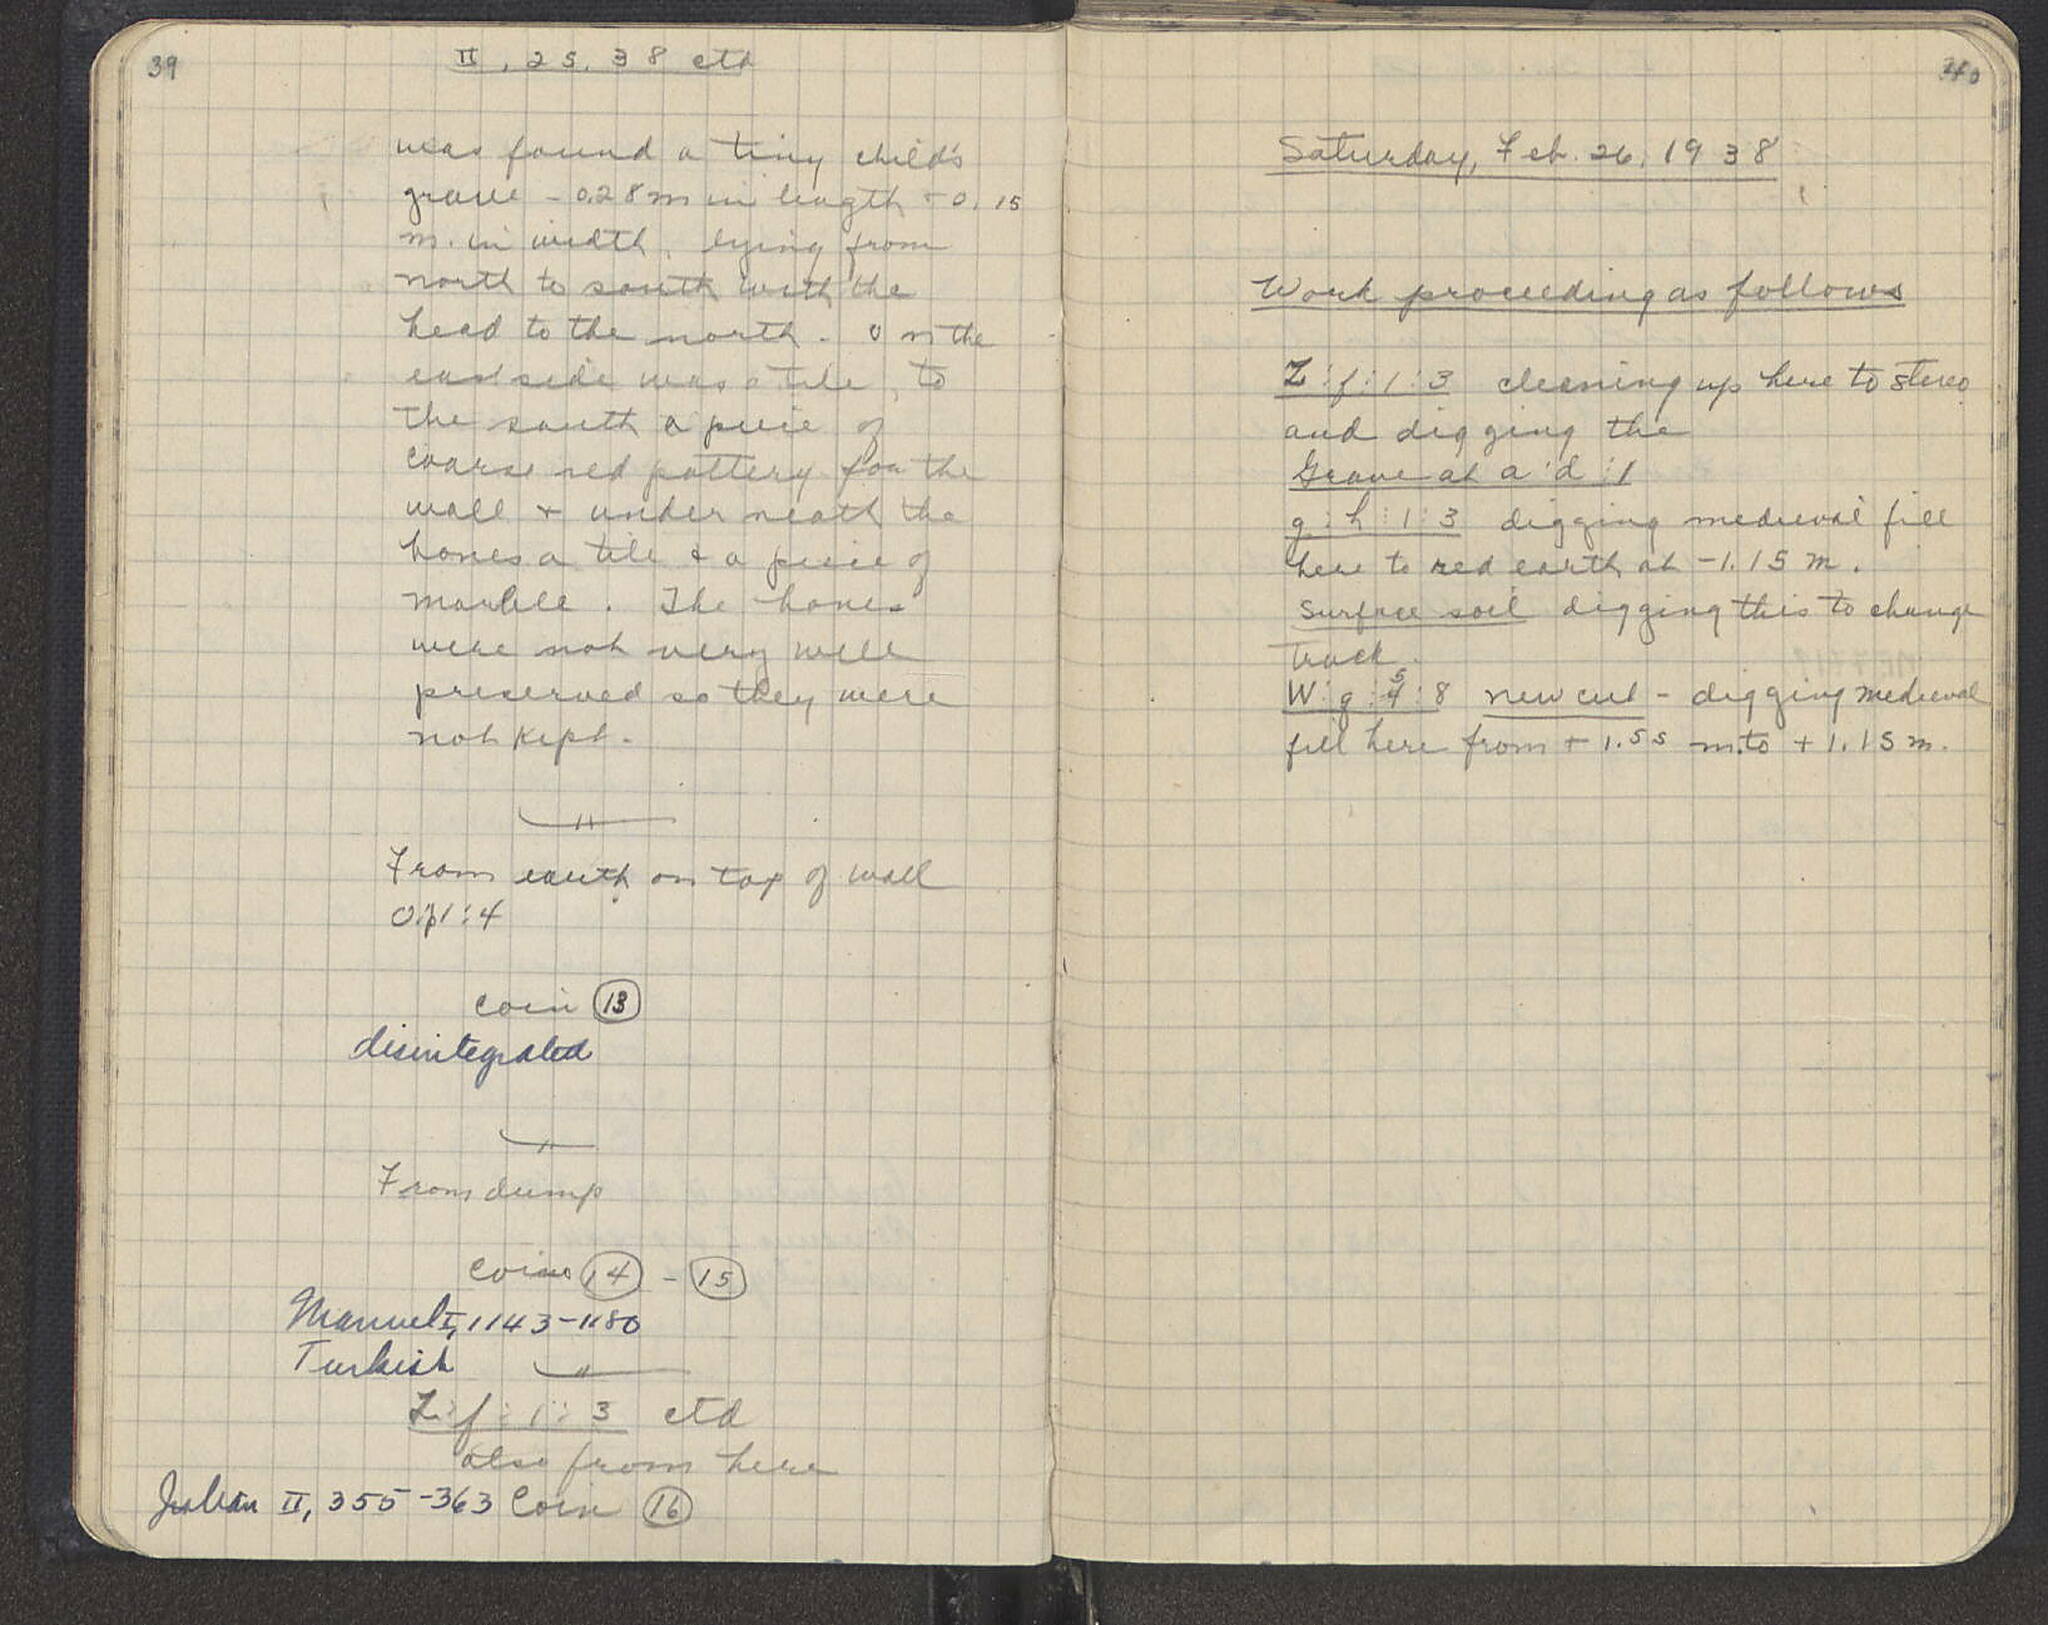 39
II, 25. 38 ctd
was found a tiny child's
grave - 0.28 m in length + 0.15
m. in width, lying from
north to south with the
head to the north. On the
east side was a tile, to
the south a piece of
coarse red pottery for the
wall + under neath the
bones a tile & a piece of
marble. The bones
were not very well
preserved so they were
not kept.
From earth on top of wall
O:p:1:4
coin 13
disintegrated
From dump
coins 14 - 15
Manuel I, 1143-1180
Turkish
Z:f:1:3 ctd
also from here
Julian II, 355-363 Coin 16
40
Saturday, Feb. 26, 1938
Work proceeding as follows
Z:f:1:3 cleaning up here to stereo
and digging the
Grave at a:d:1
g:h:1:3 digging medieval fill
here to red earth at -1.15 m.
Surface soil digging this to change
track.
W:g:5:8 new cut - digging medieval
fill here from + 1.55 m. to + 1.15 m.